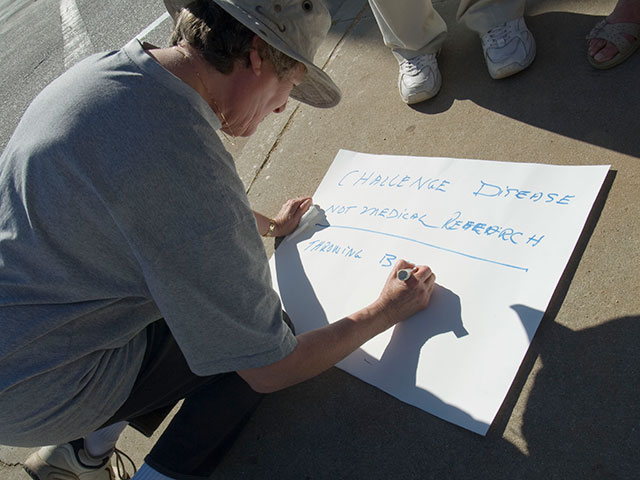 CHALLENGE DISEASE
NOT MEDICAL RESEARCH
THROWING B